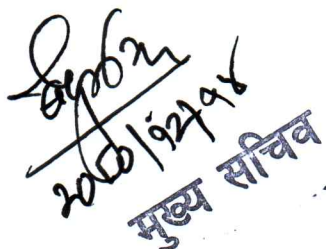 २०८०/१२/१४
मुख्य सचिव